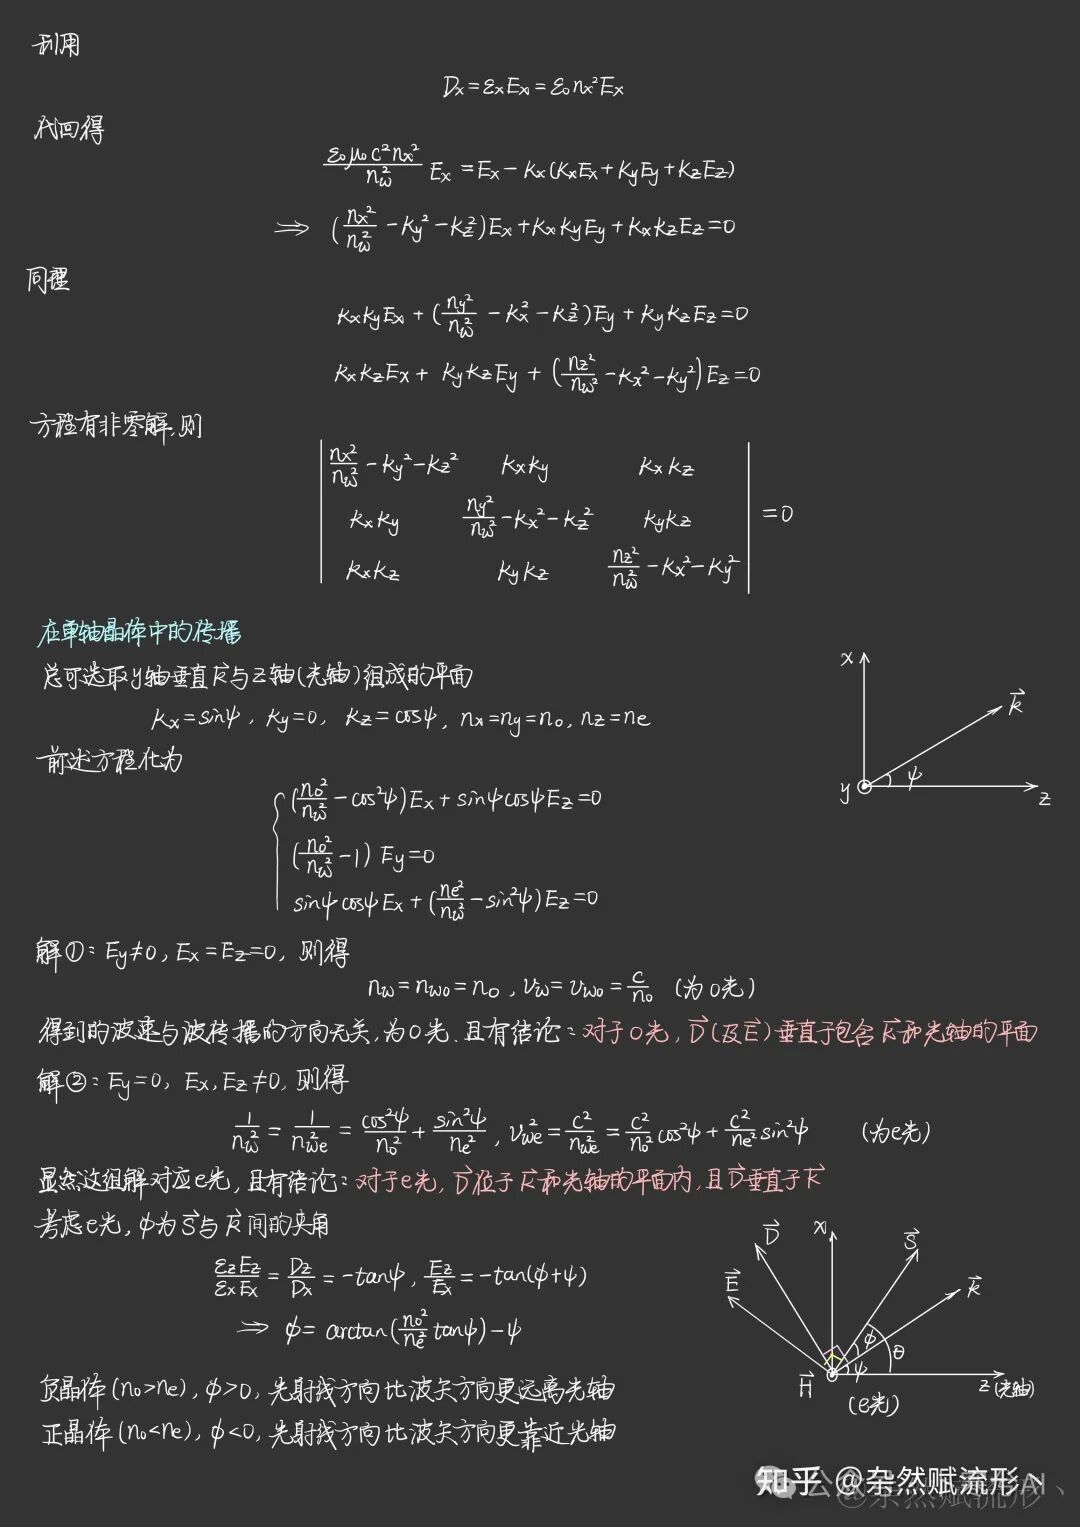 利用
Dx=εxEx=ε₀nx²Ex
代回得
ε₀μ₀c²nx²/nω² Ex=Ex-kx(kxEx+kyEy+kzEz)
⇒ (nx²/nω²-ky²-kz²)Ex+kxkyEy+kxkzEz=0
同理
kxkyEx+(ny²/nω²-kx²-kz²)Ey+kykzEz=0
kxkzEx+kykzEy+(nz²/nω²-kx²-ky²)Ez=0
方程有非零解,则
|nx²/nω²-ky²-kz² kxky kxkz|
|kxky ny²/nω²-kx²-kz² kykz|=0
|kxkz kykz nz²/nω²-kx²-ky²|
在单轴晶体中的传播
总可选取y轴垂直k⃗与z轴(光轴)组成的平面
kx=sinψ, ky=0, kz=cosψ, nx=ny=no, nz=ne
x
k⃗
ψ
y
z
前述方程化为
{(no²/nω²-cos²ψ)Ex+sinψcosψEz=0
(no²/nω²-1)Ey=0
sinψcosψEx+(ne²/nω²-sin²ψ)Ez=0
解①:Ey≠0,Ex=Ez=0, 则得
nω=nωo=no,vω=vωo=c/no (为o光)
得到的波速与波传播的方向无关,为o光.且有结论:对于o光,D⃗(及E⃗)垂直于包含k⃗和光轴的平面
解②:Ey=0, Ex,Ez≠0,则得
1/nω²=1/nωe²=cos²ψ/no²+sin²ψ/ne², vωe²=c²/nωe²=c²/no² cos²ψ+c²/ne² sin²ψ (为e光)
显然这组解对应e光,且有结论:对于e光,D⃗位于k⃗和光轴的平面内,且D⃗垂直于k⃗
考虑e光,φ为S⃗与k⃗间的夹角
εzEz/εxEx=Dz/Dx=-tanψ, Ez/Ex=-tan(φ+ψ)
⇒ φ=arctan(no²/ne² tanψ)-ψ
D⃗
x
S⃗
E⃗
k⃗
φ
θ
ψ
H⃗
z(光轴)
(e光)
负晶体(no>ne),φ>0,光射线方向比波矢方向更远离光轴
正晶体(no<ne),φ<0,光射线方向比波矢方向更靠近光轴
知乎 @杂然赋流形